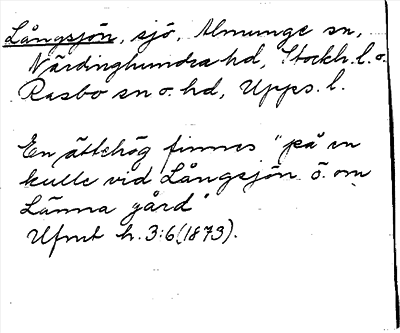 Långsjön, sjö, Almunge sn,
Närdinghundra hd, Stockh. l. o.
Rasbo sn o. hd, Upps. l.
En ättehög finnes "på en
kulle vid Långsjön ö. om
Länna gård"
Ufmt h. 3:6 (1873).